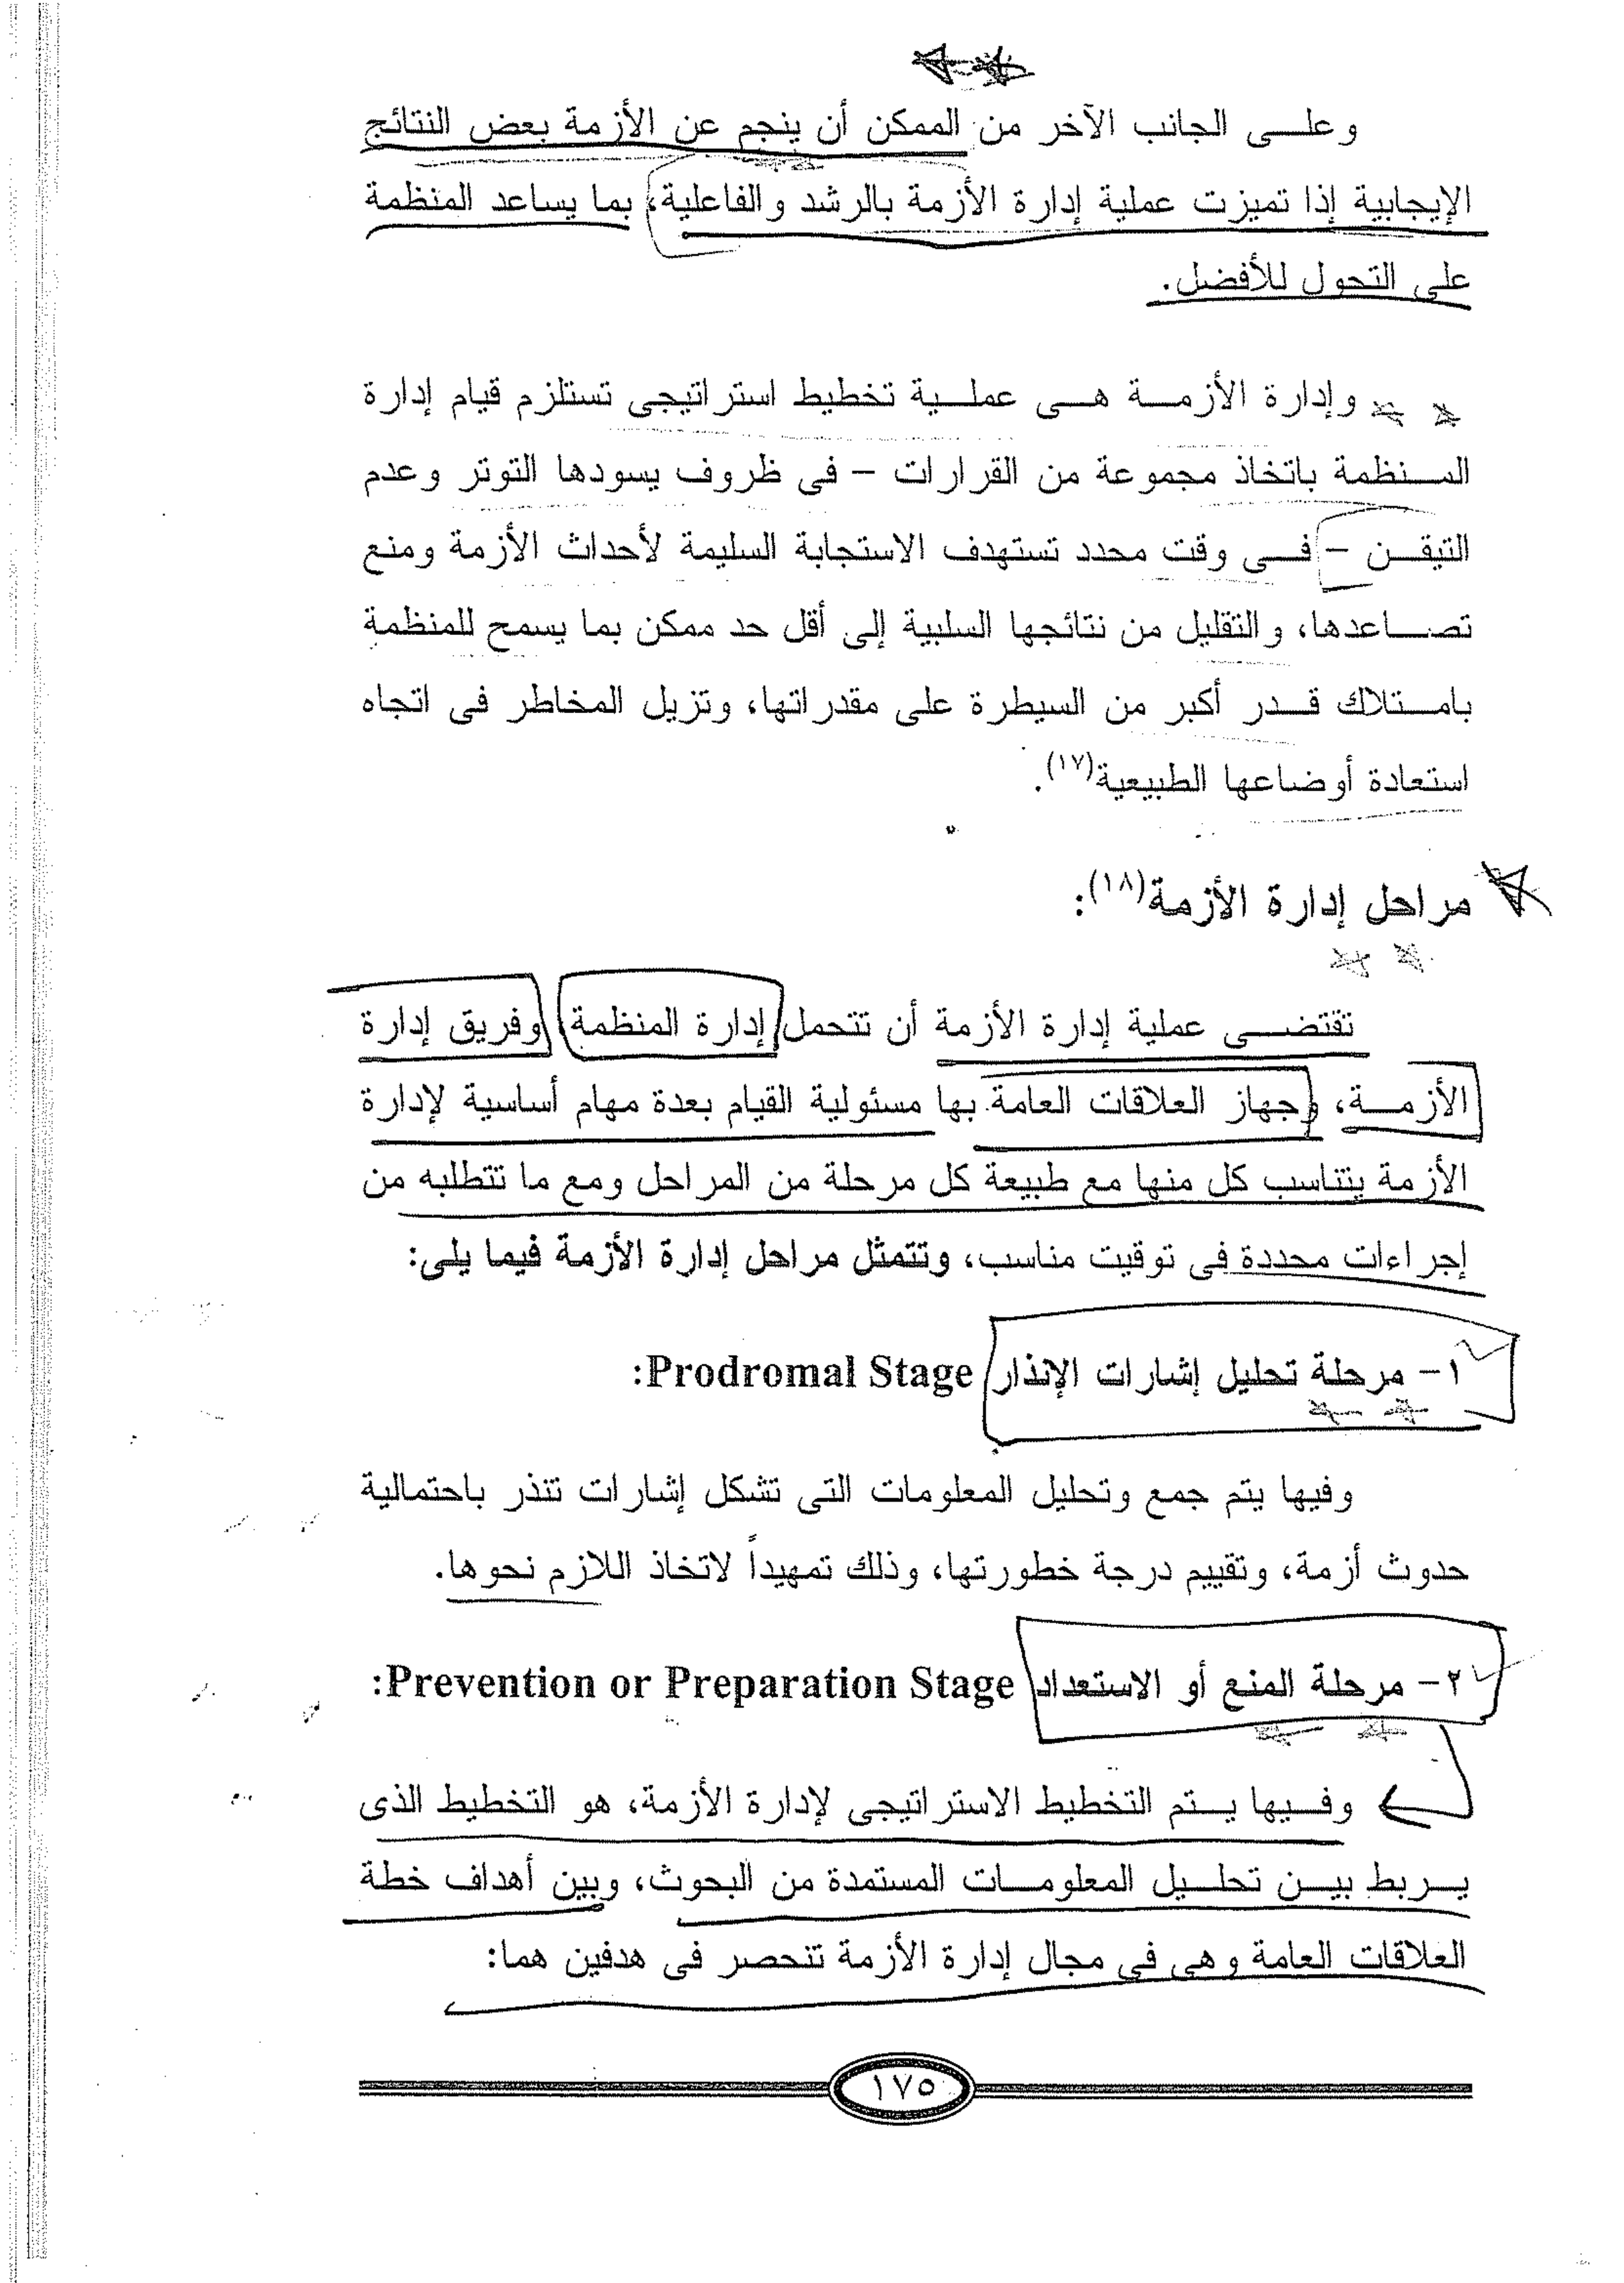 وعلى الجانب الآخر من الممكن أن ينجم عن الأزمة بعض النتائج
الإيجابية إذا تميزت عملية إدارة الأزمة بالرشد والفاعلية، بما يساعد المنظمة
على التحول للأفضل.
وإدارة الأزمة هى عملية تخطيط استراتيجى تستلزم قيام إدارة
المنظمة باتخاذ مجموعة من القرارات – فى ظروف يسودها التوتر وعدم
التيقن – فى وقت محدد تستهدف الاستجابة السليمة لأحداث الأزمة ومنع
تصاعدها، والتقليل من نتائجها السلبية إلى أقل حد ممكن بما يسمح للمنظمة
بامتلاك قدر أكبر من السيطرة على مقدراتها، وتزيل المخاطر فى اتجاه
استعادة أوضاعها الطبيعية(١٧).
مراحل إدارة الأزمة(١٨):
تقتضى عملية إدارة الأزمة أن تتحمل إدارة المنظمة وفريق إدارة
الأزمة، وجهاز العلاقات العامة بها مسئولية القيام بعدة مهام أساسية لإدارة
الأزمة يتناسب كل منها مع طبيعة كل مرحلة من المراحل ومع ما تتطلبه من
إجراءات محددة فى توقيت مناسب، وتتمثل مراحل إدارة الأزمة فيما يلى:
١- مرحلة تحليل إشارات الإنذار Prodromal Stage:
وفيها يتم جمع وتحليل المعلومات التى تشكل إشارات تنذر باحتمالية
حدوث أزمة، وتقييم درجة خطورتها، وذلك تمهيداً لاتخاذ اللازم نحوها.
٢- مرحلة المنع أو الاستعداد Prevention or Preparation Stage:
وفيها يتم التخطيط الاستراتيجى لإدارة الأزمة، هو التخطيط الذى
يربط بين تحليل المعلومات المستمدة من البحوث، وبين أهداف خطة
العلاقات العامة وهى فى مجال إدارة الأزمة تنحصر فى هدفين هما:
١٧٥